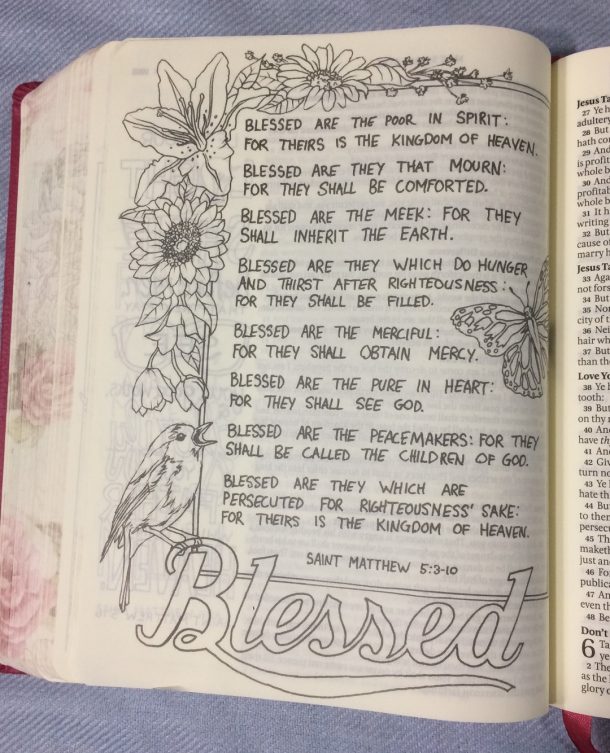 BLESSED ARE THE POOR IN SPIRIT:
FOR THEIRS IS THE KINGDOM OF HEAVEN.
BLESSED ARE THEY THAT MOURN:
FOR THEY SHALL BE COMFORTED.
BLESSED ARE THE MEEK: FOR THEY
SHALL INHERIT THE EARTH.
BLESSED ARE THEY WHICH DO HUNGER
AND THIRST AFTER RIGHTEOUSNESS:
FOR THEY SHALL BE FILLED.
BLESSED ARE THE MERCIFUL:
FOR THEY SHALL OBTAIN MERCY.
BLESSED ARE THE PURE IN HEART:
FOR THEY SHALL SEE GOD.
BLESSED ARE THE PEACEMAKERS: FOR THEY
SHALL BE CALLED THE CHILDREN OF GOD.
BLESSED ARE THEY WHICH ARE
PERSECUTED FOR RIGHTEOUSNESS' SAKE:
FOR THEIRS IS THE KINGDOM OF HEAVEN.
SAINT MATTHEW 5:3-10
Blessed
Jesus Ta
27 Ye h
adultery
28 But
hath co
29 And
is profit
whole b
30 And
profitab
whole b
31 It h
writing
32 But
cause o
marry h
Jesus Ta
33 Aga
not fors
34 But
35 Nor
city of t
36 Nei
hair wh
37 But
than the
Love Yo
38 Ye
tooth:
39 But
on thy r
40 And
have th
41 And
42 Giv
turn no
43 Ye
hate th
44 But
to them
persecu
45 Tha
maketh
just and
46 For
publica
47 An
even th
48 Be
Don't
6 Ta
ye
2 The
as the
glory o